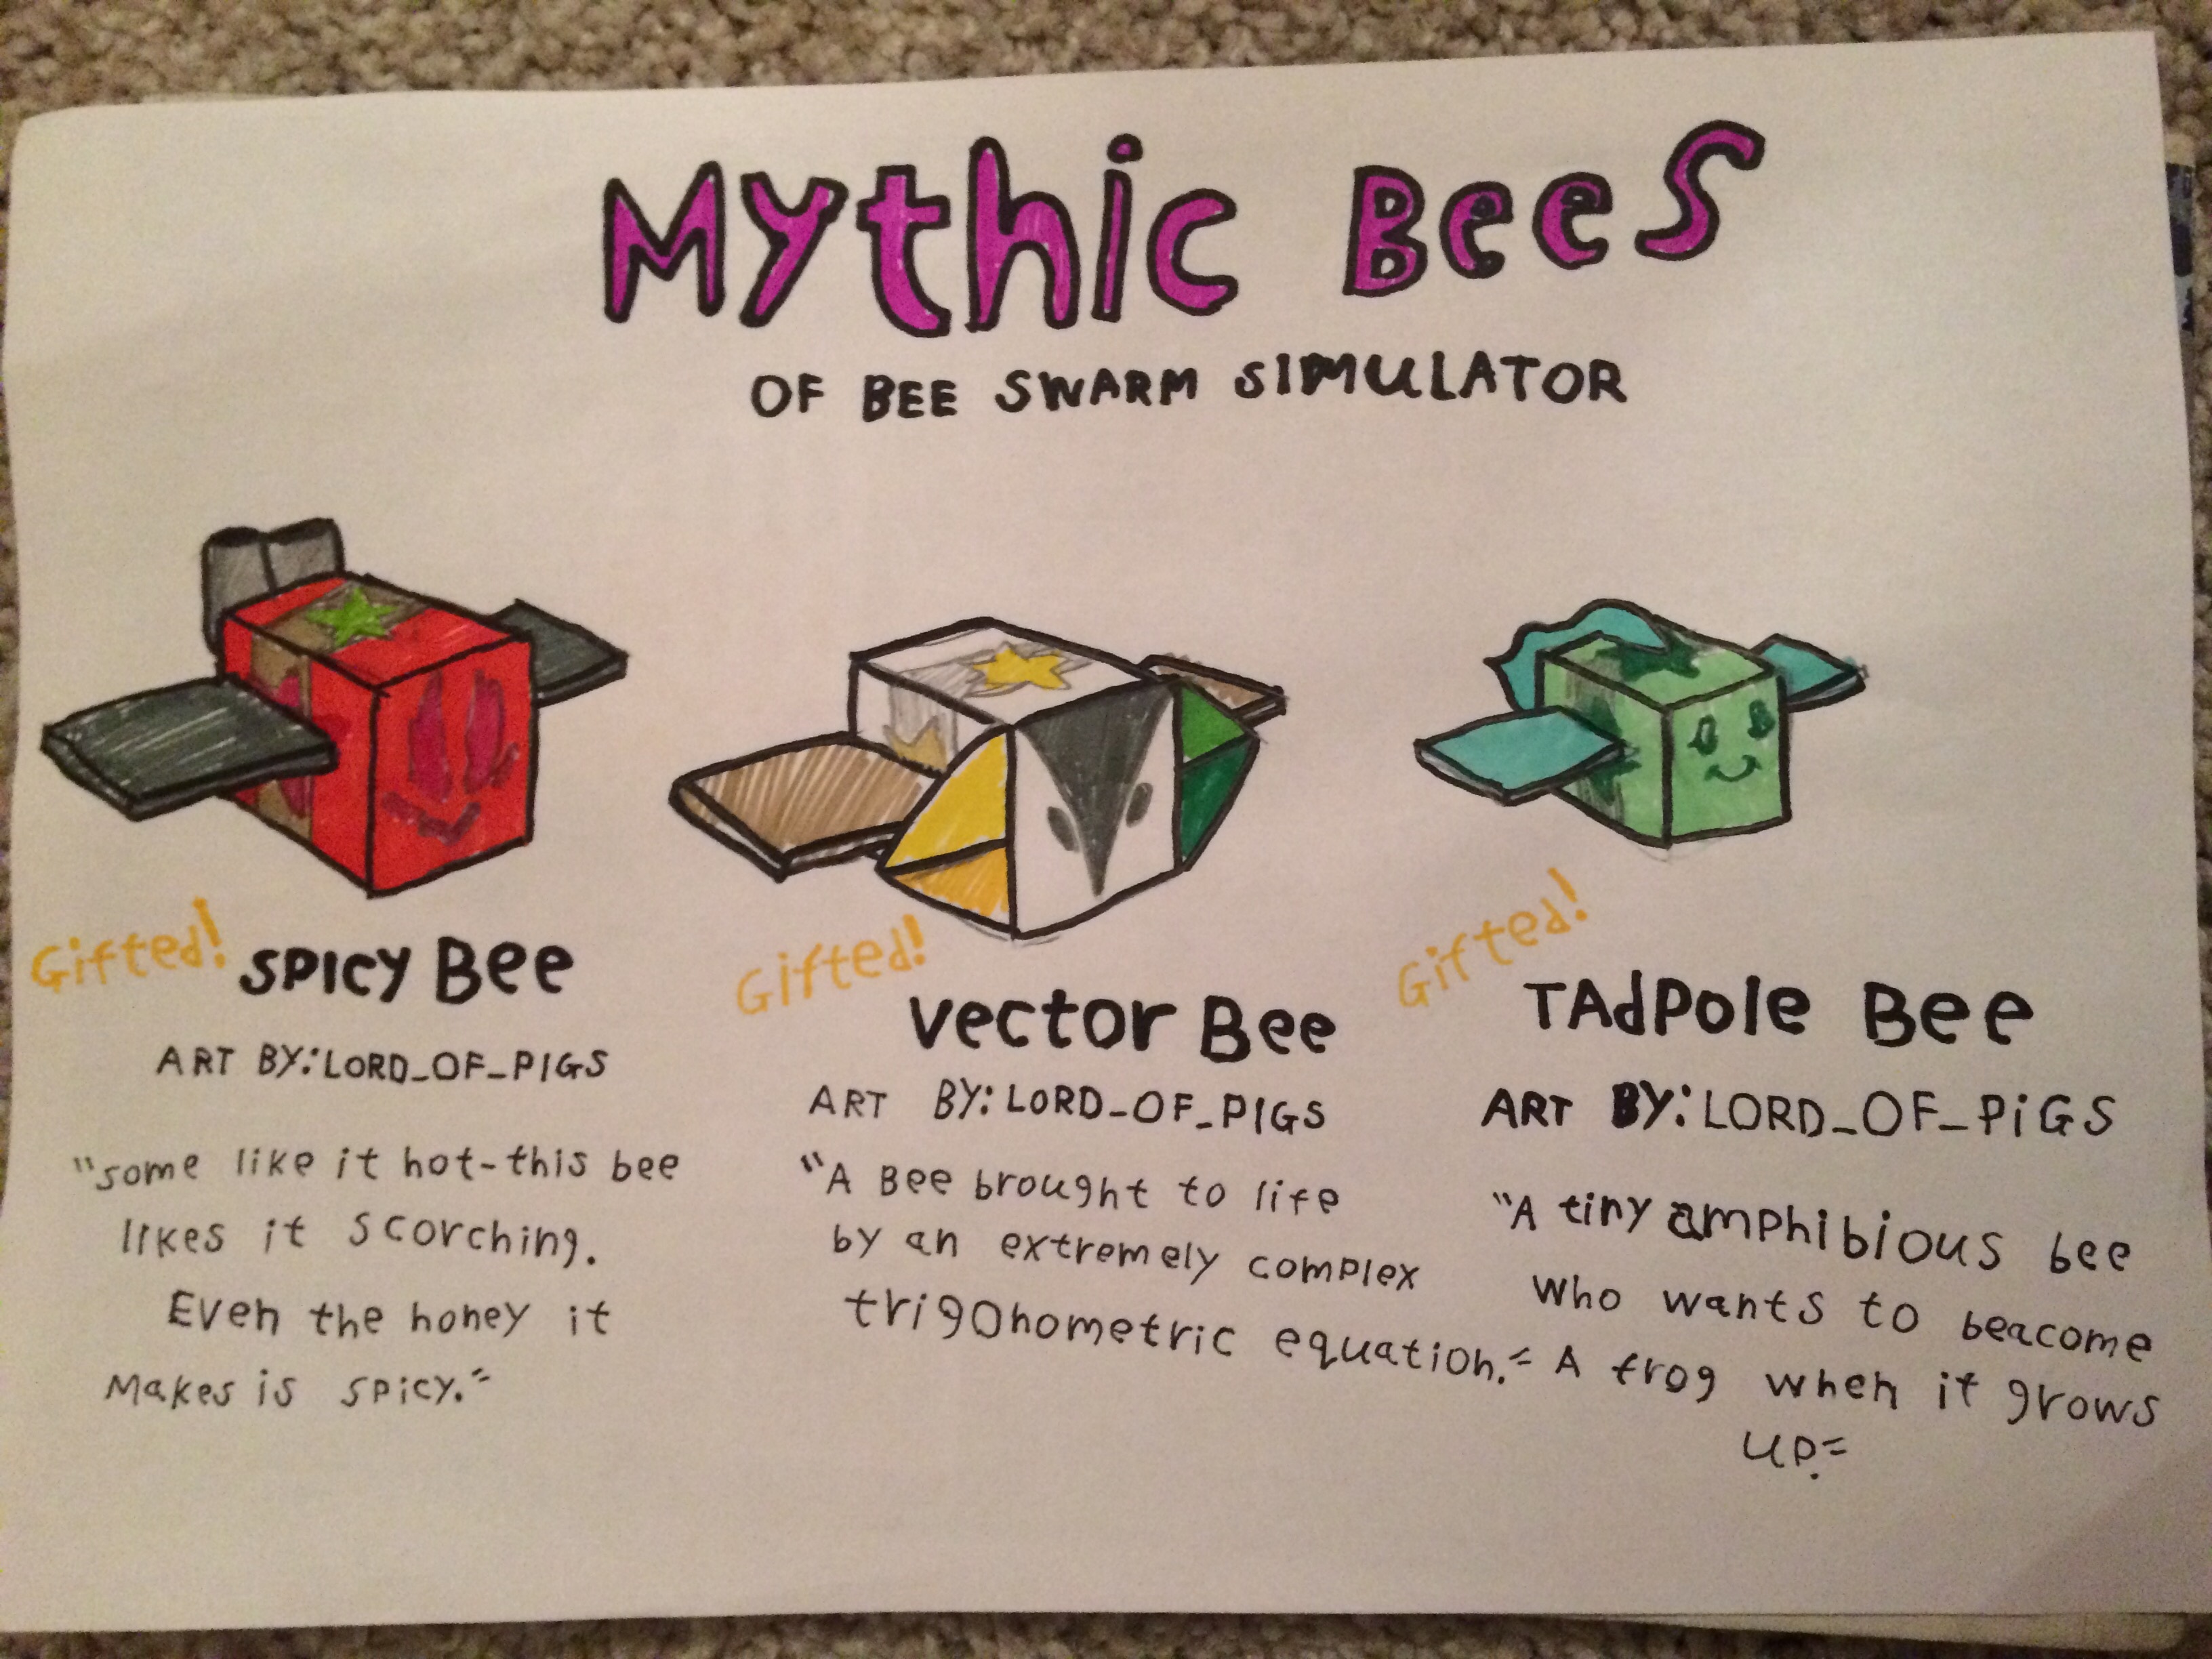 Mythic Bees
OF BEE SWARM SIMULATOR
Gifted!
SPICY Bee
ART BY: LORD_OF_PIGS
"some like it hot-this bee
likes it scorching.
Even the honey it
Makes is spicy."
Gifted!
Vector Bee
ART BY: LORD_OF_PIGS
"A Bee brought to life
by an extremely complex
trigonometric equation."
Gifted!
TAdPole Bee
ART BY: LORD_OF_PiGS
"A tiny amphibious bee
Who wants to beacome
A frog when it grows
up."